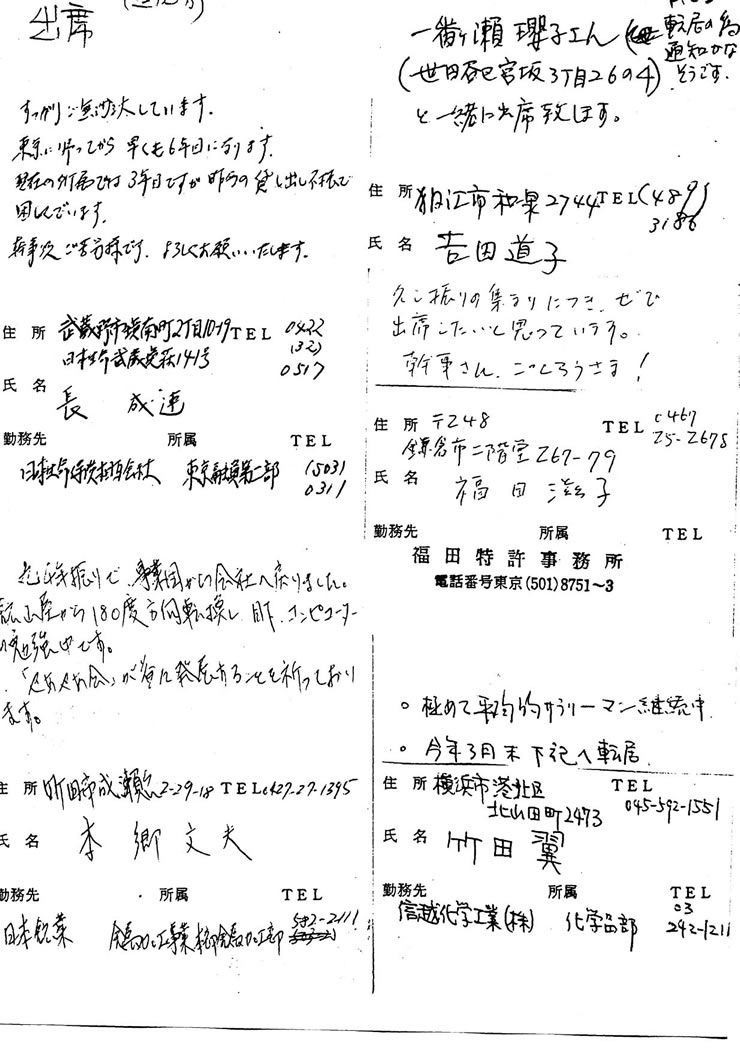 出席
すっかりご無沙汰しています。
東京に帰ってから早くも6年目になります。
現在の所属では3年目ですが昨今の貸し出し不振で
困しんでいます。
幹事次ご苦労様です。よろしくお願いいたします。
住所 武蔵野市境南町2丁目10-19 TEL 0422
日本生命武蔵境荘141号 (32)
0517
氏名
長 成連
勤務先 所属 TEL
日本生命保険相互会社 東京融資第二部 (503)
0311
振りで、事業団から会社へ戻りました。
鉱山屋から180度方向転換し、目下、コンピューター
勉強中です。
会」が益に発展することを祈っており
ます。
住所 町田市成瀬 2-29-18 TEL 0427-27-1395
氏名 本郷文夫
勤務先 所属 TEL
日本鉱業 金属加工事業本部金属加工部 582-2111
一番ヶ瀬 瓔子さん
転居の為
通知がな
そうです。
(世田谷区宮坂3丁目26の4)
と一緒に出席致します。
住所 狛江市和泉2744 TEL (489)
3186
氏名 吉田道子
久し振りの集まりにつき、ぜひ
出席したいと思っています。
幹事さん、ごくろうさま!
住所 〒248 TEL 0467
鎌倉市二階堂267-79 25-2678
氏名 福田滋子
勤務先 所属 TEL
福田特許事務所
電話番号東京(501)8751~3
○ 極めて平均的サラリーマン継続中
○ 今年3月末下記へ転居
住所 横浜市港北区 TEL
北山田町2473 045-592-1551
氏名 竹田翼
勤務先 所属 TEL
信越化学工業(株) 化学品部 03
242-1211